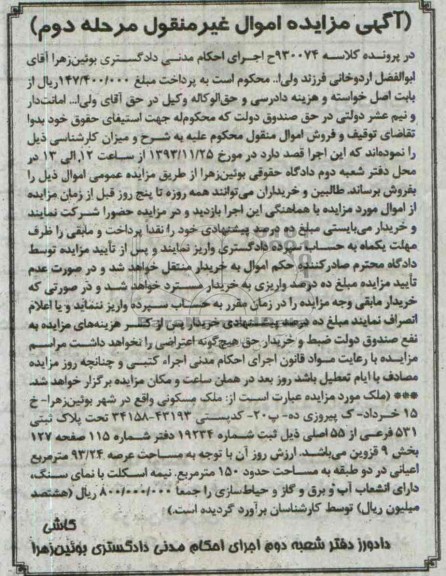 (آگهی مزایده اموال غیرمنقول مرحله دوم)
در پرونده کلاسه ۹۳۰۰۷۴ح اجرای احکام مدنی دادگستری بوئین‌زهرا آقای
ابوالفضل اردوخانی فرزند ولی‌ا... محکوم است به پرداخت مبلغ ۱۴۷/۴۰۰/۰۰۰ریال از
بابت اصل خواسته و هزینه دادرسی و حق‌الوکاله وکیل در حق آقای ولی‌ا... امانت‌دار
و نیم عشر دولتی در حق صندوق دولت که محکوم‌له جهت استیفای حقوق خود بدوا
تقاضای توقیف و فروش اموال منقول محکوم علیه به شرح و میزان کارشناسی ذیل
را نموده‌اند که این اجرا قصد دارد در مورخ ۱۳۹۳/۱۱/۲۵ از ساعت ۱۲ الی ۱۳ در
محل دفتر شعبه دوم دادگاه حقوقی بوئین‌زهرا از طریق مزایده عمومی اموال ذیل را
بفروش برساند. طالبین و خریداران می‌توانند همه روزه تا پنج روز قبل از زمان مزایده
از اموال مورد مزایده با هماهنگی این اجرا بازدید و در مزایده حضورا شرکت نمایند
و خریدار می‌بایستی مبلغ ده درصد پیشنهادی خود را نقدا پرداخت و مابقی را ظرف
مهلت یکماه به حساب سپرده دادگستری واریز نمایند و پس از تأیید مزایده توسط
دادگاه محترم صادرکننده حکم اموال به خریدار منتقل خواهد شد و در صورت عدم
تأیید مزایده مبلغ ده درصد واریزی به خریدار مسترد خواهد شد و در صورتی که
خریدار مابقی وجه مزایده را در زمان مقرر به حساب سپرده واریز ننماید و یا اعلام
انصراف نمایند مبلغ ده درصد پیشنهادی خریدار پس از کسر هزینه‌های مزایده به
نفع صندوق دولت ضبط و خریدار حق هیچ‌گونه اعتراضی را نخواهد داشت مراسم
مزایده با رعایت مواد قانون اجرای احکام مدنی اجراء کتبی و چنانچه روز مزایده
مصادف با ایام تعطیل باشد روز بعد در همان ساعت و مکان مزایده برگزار خواهد شد.
*** (ملک مورد مزایده عبارت است از: ملک مسکونی واقع در شهر بوئین‌زهرا- خ
۱۵ خرداد- ک پیروزی ده- پ۲۰- کدپستی ۴۳۱۹۳-۳۴۱۵۸ تحت پلاک ثبتی
۵۳۱ فرعی از ۵۵ اصلی ذیل ثبت شماره ۱۹۲۳۴ دفتر شماره ۱۱۵ صفحه ۱۲۷
بخش ۹ قزوین می‌باشد. ارزش روز آن با توجه به مساحت عرصه ۹۳/۲۴ مترمربع
اعیانی در دو طبقه به مساحت حدود ۱۵۰ مترمربع. نیمه اسکلت با نمای سنگ،
دارای انشعاب آب و برق و گاز و حیاط‌سازی را جمعا ۸۰۰/۰۰۰/۰۰۰ ریال (هشتصد
میلیون ریال) توسط کارشناسان برآورد گردیده است.)
کاشی
دادورز دفتر شعبه دوم اجرای احکام مدنی دادگستری بوئین‌زهرا